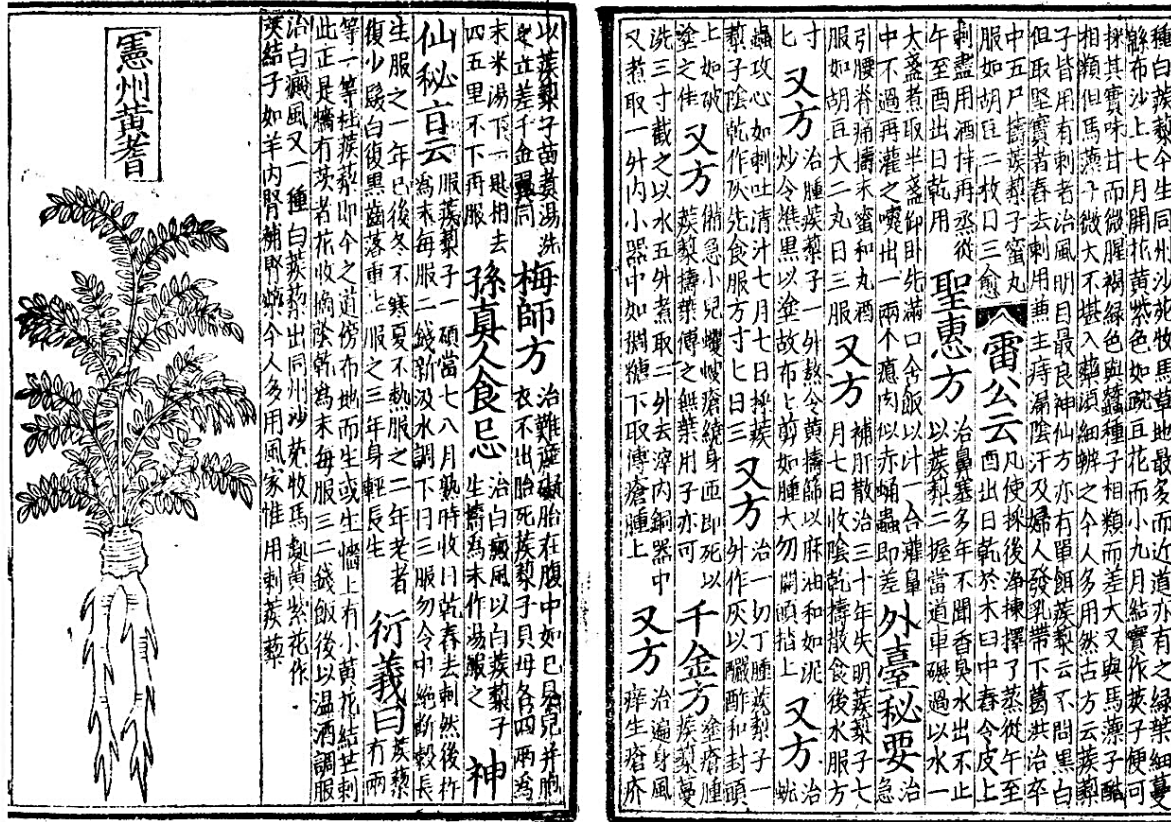 種白蒺藜今生同州沙苑牧馬草地最多而近道亦有之緑葉細蔓
緜布沙上七月開花黃紫色如豌豆花而小九月結實作莢子便可
採其實味甘而微腥褐緑色與蠶種子相類而差大又與馬薸子酷
相類但馬薸子微大不堪入藥須細辨之今人多用然古方云蒺藜
子皆用有刺者治風明目最良神仙方亦有單餌蒺藜云不問黑白
但取堅實者舂去刺用兼主痔漏陰汗及婦人發乳帶下葛洪治卒
中五尸擣蒺藜子蜜丸
服如胡豆二枚日三愈
雷公云
凡使採後淨揀擇了蒸從午至
酉出日乾於木臼中舂令皮上
刺盡用酒拌再蒸從
午至酉出日乾用
聖惠方
治鼻塞多年不聞香臭水出不止
以蒺藜二握當道車碾過以水一
大盞煮取半盞仰卧先滿口含飯以汁一合灌鼻
中不過再灌之嚏出一兩个瘜肉似赤蛹蟲即差
外臺秘要
治
急
引腰脊痛擣末蜜和丸酒
服如胡豆大二丸日三服
又方
補肝散治三十年失明蒺藜子七
月七日收陰乾擣散食後水服方
寸
匕
又方
治腫蒺藜子一升熬令黃擣篩以麻油和如泥
炒令燋黑以塗故布上剪如腫大勿開頭搨上
又方
治
蚘
蟲攻心如刺吐清汁七月七日採蒺
藜子陰乾作灰先食服方寸匕日三
又方
治一切丁腫蒺藜子一
升作灰以釅酢和封頭
上如破
塗之佳
又方
備急小兒蠷螋瘡繞身匝即死以
蒺藜擣葉傅之無葉用子亦可
千金方
塗瘡腫
蒺藜蔓
洗三寸截之以水五升煮取二升去滓內銅器中
又煮取一升內小器中如稠糖下取傅瘡腫上
又方
治遍身風
痒生瘡疥
以蒺藜子苗煮湯洗
之立差千金翼同
梅師方
治難產礙胎在腹中如已見兒并胞
衣不出胎死蒺藜子貝母各四兩為
末米湯下一匙相去
四五里不下再服
孫真人食忌
治白癜風以白蒺藜子
生擣為末作湯服之
神
仙秘旨云
服蒺藜子一碩當七八月熟時收日乾舂去刺然後杵
為末每服二錢新汲水調下日三服勿令中絕斷穀長
生服之一年已後冬不寒夏不熱服之二年老者
復少髮白復黑齒落重生服之三年身輕長生
衍義曰
蒺藜
有兩
等一等杜蒺藜即今之道傍布地而生或生墻上有小黃花結芒刺
此正是墻有茨者花收摘陰乾為末每服三二錢飯後以溫酒調服
治白癜風又一種白蒺藜出同州沙苑牧馬處黃紫花作
莢結子如羊內腎補腎藥今人多用風家惟用刺蒺藜
憲州黃耆